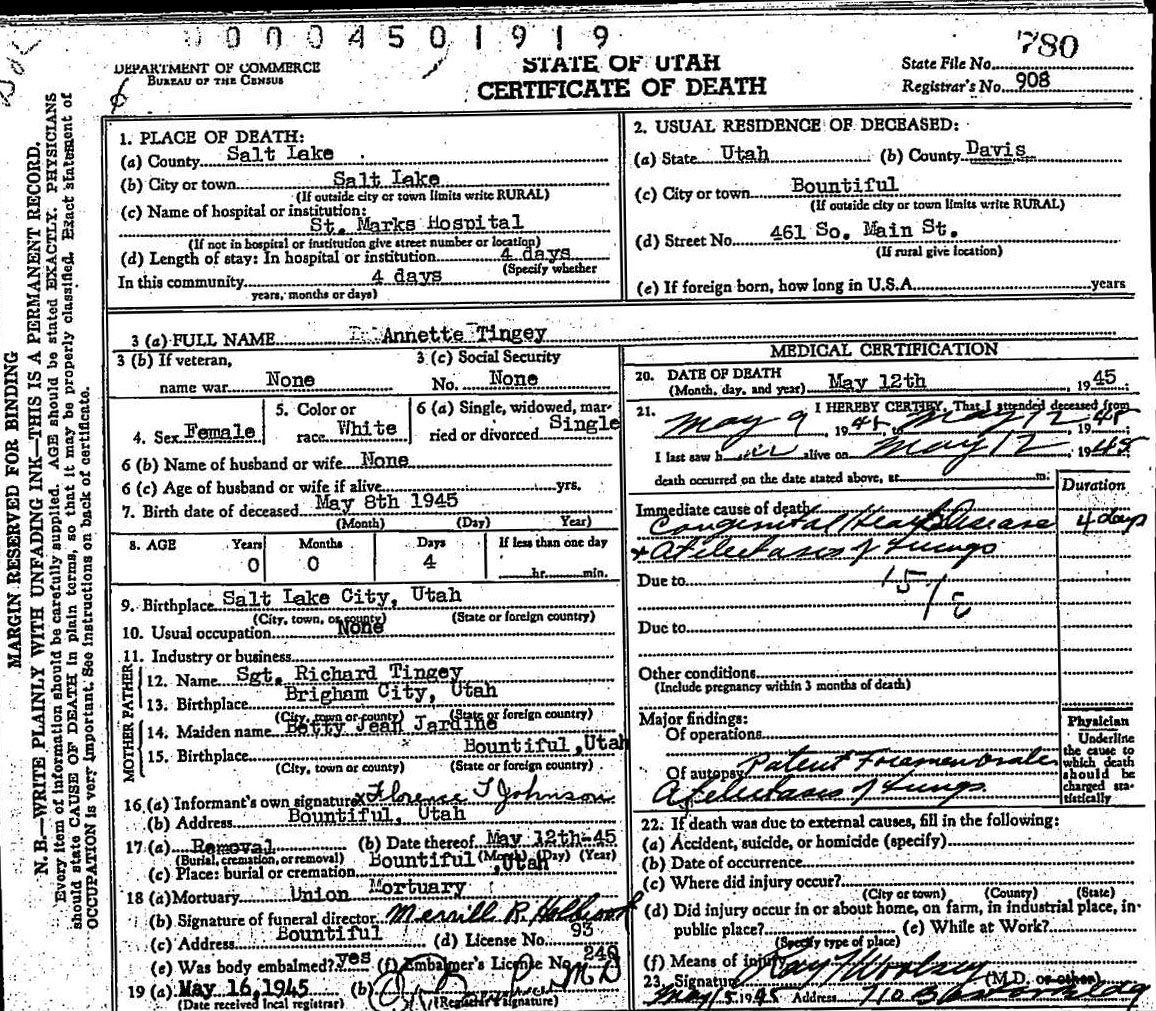 0 0 0 0 4 5 0 1 9 1 9
780
DEPARTMENT OF COMMERCE
BUREAU OF THE CENSUS
STATE OF UTAH
CERTIFICATE OF DEATH
State File No.
Registrar's No. 908
MARGIN RESERVED FOR BINDING
N. B.—WRITE PLAINLY WITH UNFADING INK—THIS IS A PERMANENT RECORD.
Every item of information should be carefully supplied. AGE should be stated EXACTLY. PHYSICIANS
should state CAUSE OF DEATH in plain terms, so that it may be properly classified. Exact statement of
OCCUPATION is very important. See instructions on back of certificate.
1. PLACE OF DEATH:
(a) County Salt Lake
(b) City or town Salt Lake
(If outside city or town limits write RURAL)
(c) Name of hospital or institution:
St. Marks Hospital
(If not in hospital or institution give street number or location)
(d) Length of stay: In hospital or institution 4 days
(Specify whether
In this community 4 days
years, months or days)
2. USUAL RESIDENCE OF DECEASED:
(a) State Utah (b) County Davis
(c) City or town Bountiful
(If outside city or town limits write RURAL)
(d) Street No. 461 So. Main St.
(If rural give location)
(e) If foreign born, how long in U.S.A. years
3 (a) FULL NAME Annette Tingey
3 (b) If veteran, 3 (c) Social Security
name war None No. None
4. Sex Female 5. Color or race White 6 (a) Single, widowed, married or divorced Single
6 (b) Name of husband or wife None
6 (c) Age of husband or wife if alive yrs.
7. Birth date of deceased May 8th 1945
(Month) (Day) Year)
8. AGE Years Months Days If less than one day
0 0 4 hr. min.
9. Birthplace Salt Lake City, Utah
(City, town, or county) (State or foreign country)
10. Usual occupation None
11. Industry or business
FATHER
12. Name Sgt. Richard Tingey
13. Birthplace Brigham City, Utah
(City, town or county) (State or foreign country)
MOTHER
14. Maiden name Betty Jean Jardine
15. Birthplace Bountiful, Utah
(City, town or county) (State or foreign country)
16. (a) Informant's own signature x Florence T Johnson
(b) Address Bountiful, Utah
17. (a) Removal (b) Date thereof May 12th-45
(Burial, cremation, or removal) (Month) (Day) (Year)
(c) Place: burial or cremation Bountiful, Utah
18 (a) Mortuary Union Mortuary
(b) Signature of funeral director Merrill R. Holbrook
(c) Address Bountiful (d) License No. 93
(e) Was body embalmed? yes (f) Embalmer's License No.
19 (a) May 16, 1945 (b) M D
(Date received local registrar) (Registrar's signature)
MEDICAL CERTIFICATION
20. DATE OF DEATH
(Month, day, and year) May 12th, 1945
21. I HEREBY CERTIFY, That I attended deceased from
May 9, 1945 to May 12 1945
I last saw her alive on May 12, 1945
death occurred on the date stated above, at m.
Duration
Immediate cause of death
Congenital Heart Disease 4 days
+ Atelectases of Lungs
Due to
Due to
Other conditions
(Include pregnancy within 3 months of death)
Major findings:
Of operations
Of autopsy Patent Foramen Ovale
Atelectases of Lungs
Physician
Underline
the cause to
which death
should be
charged sta-
tistically
22. If death was due to external causes, fill in the following:
(a) Accident, suicide, or homicide (specify)
(b) Date of occurrence
(c) Where did injury occur?
(City or town) (County) (State)
(d) Did injury occur in or about home, on farm, in industrial place, in
public place? (e) While at Work?
(Specify type of place)
(f) Means of injury
23. Signature Ray T Woolsey (M.D. or other)
May 15 1945 Address